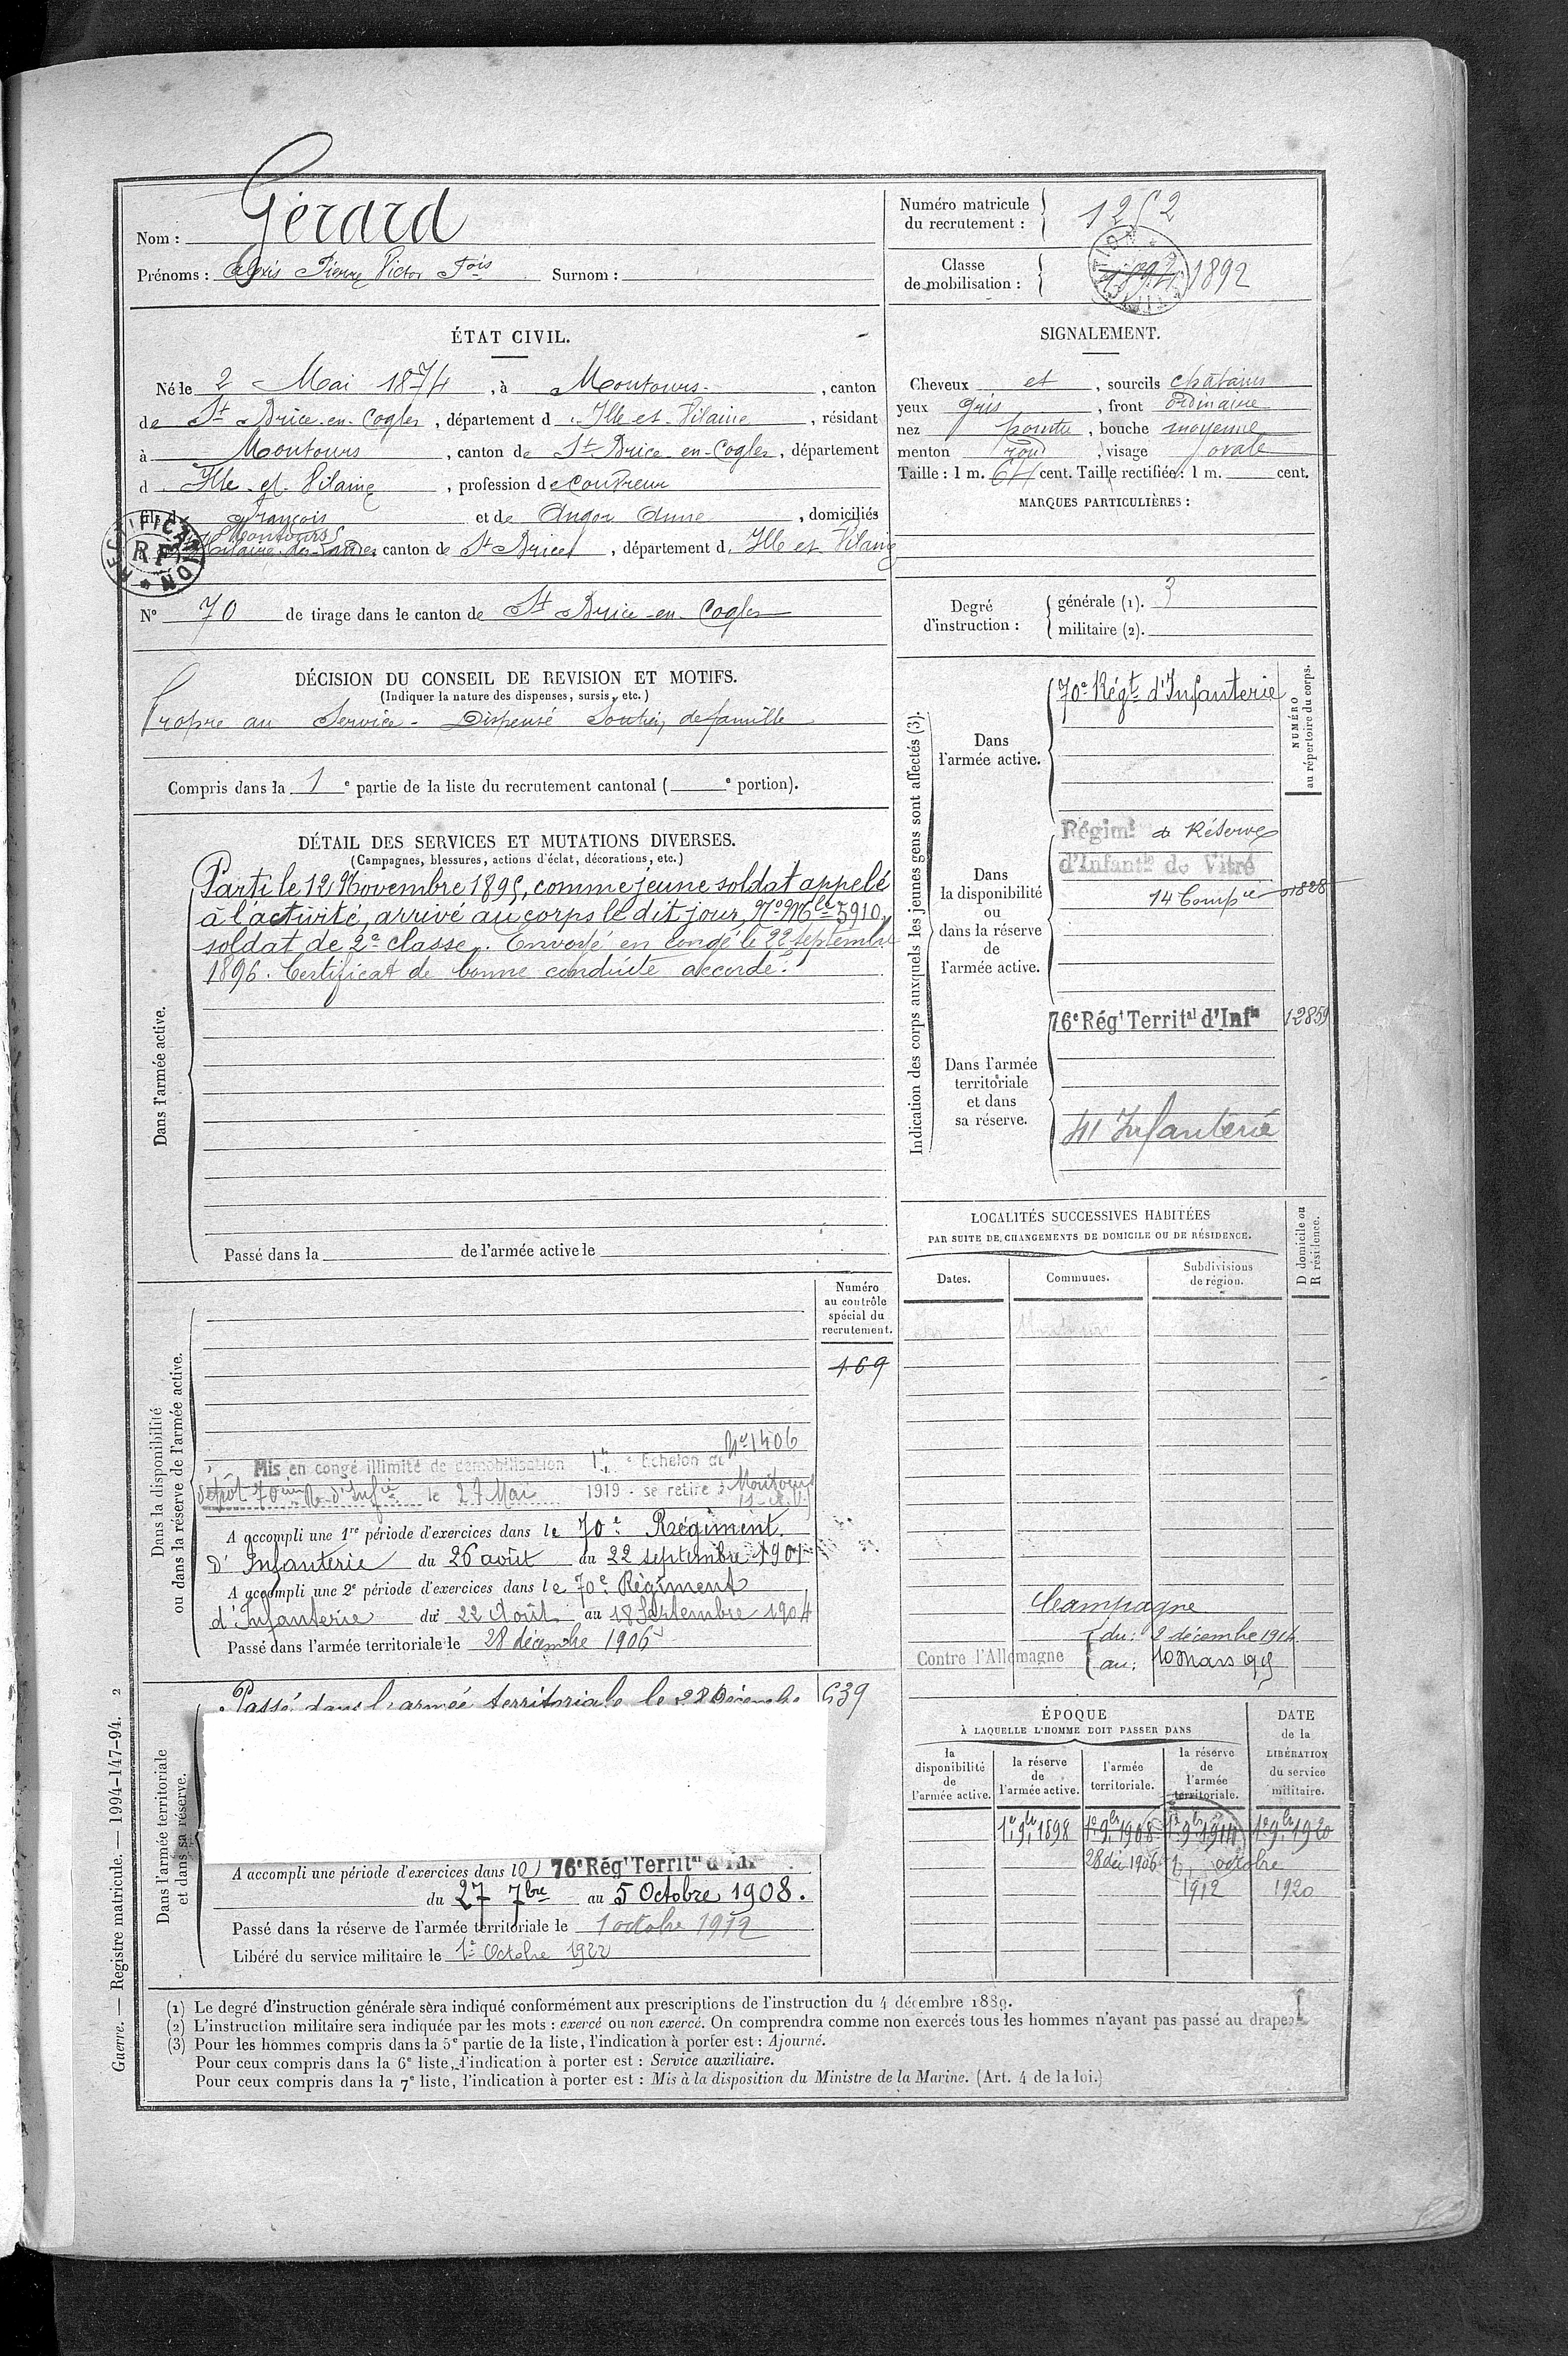 Nom : Gérard
Prénoms : Alexis Pierre Victor Fois Surnom :
Numéro matricule du recrutement : 1252
Classe de mobilisation : 1894 1892
ÉTAT CIVIL.
Né le 2 Mai 1874, à Montours, canton
de St Brice-en-Cogles, département d Ille et Vilaine, résidant
à Montours, canton de St Brice-en-Cogles, département
d Ille et Vilaine, profession de couvreur
fils de François et de Angor Anne, domiciliés
Montours
canton de St Brice, département d Ille et Vilaine
RECTIFICATION RF
N° 70 de tirage dans le canton de St Brice-en-Cogles
SIGNALEMENT.
Cheveux et, sourcils châtains
yeux gris, front ordinaire
nez pointu, bouche moyenne
menton rond, visage ovale
Taille : 1 m. 64 cent. Taille rectifiée : 1 m. cent.
MARQUES PARTICULIÈRES :
Degré d'instruction : générale (1). 3
militaire (2).
DÉCISION DU CONSEIL DE REVISION ET MOTIFS.
(Indiquer la nature des dispenses, sursis, etc.)
Propre au Service - Dispensé Soutien de famille
Compris dans la 1e partie de la liste du recrutement cantonal ( e portion).
DÉTAIL DES SERVICES ET MUTATIONS DIVERSES.
(Campagnes, blessures, actions d'éclat, décorations, etc.)
Dans l'armée active.
Parti le 12 Novembre 1895, comme jeune soldat appelé
à l'activité, arrivé au corps le dit jour, No Mle 5910,
soldat de 2e classe. Envoyé en congé le 22 septembre
1896. Certificat de bonne conduite accordé.
Passé dans la de l'armée active le
Indication des corps auxquels les jeunes gens sont affectés (3).
NUMÉRO au répertoire du corps.
Dans l'armée active.
70e Régt d'Infanterie
Dans la disponibilité ou dans la réserve de l'armée active.
Régimt de Réserve
d'Infantie de Vitré
14 Compie 01828
Dans l'armée territoriale et dans sa réserve.
76e Régt Territal d'Infie 12859
41 Infanterie
LOCALITÉS SUCCESSIVES HABITÉES
PAR SUITE DE CHANGEMENTS DE DOMICILE OU DE RÉSIDENCE.
Dates. Communes. Subdivisions de région. D domicile ou R résidence.
Campagne
Contre l'Allemagne du : 2 décembre 1914
au : 10 mars 1915
Dans la disponibilité ou dans la réserve de l'armée active.
Numéro au contrôle spécial du recrutement.
169
No 1406
Mis en congé illimité de démobilisation Echelon
dépôt 70ème R. d'Infie le 27 Mai 1919 - se retire à Montours
A accompli une 1re période d'exercices dans le 70e Régiment
d'Infanterie du 26 août au 22 septembre 1901
A accompli une 2e période d'exercices dans le 70e Régiment
d'Infanterie du 22 Août au 18 Septembre 1904
Passé dans l'armée territoriale le 28 décembre 1906
Dans l'armée territoriale et dans sa réserve.
Passé dans l'armée territoriale le 28 Décembre 639
A accompli une période d'exercices dans le 76e Régt Territal d'Inf
du 27 7bre au 5 Octobre 1908.
Passé dans la réserve de l'armée territoriale le 1 octobre 1912
Libéré du service militaire le 1er Octobre 1922
ÉPOQUE
À LAQUELLE L'HOMME DOIT PASSER DANS
la disponibilité de l'armée active. la réserve de l'armée active. l'armée territoriale. la réserve de l'armée territoriale. DATE de la LIBÉRATION du service militaire.
1er 9bre 1898 1er 9bre 1908 1er 9bre 1914 1er 9bre 1920
28 déc 1906 octobre
1912 1920
(1) Le degré d'instruction générale sera indiqué conformément aux prescriptions de l'instruction du 4 décembre 1889.
(2) L'instruction militaire sera indiquée par les mots : exercé ou non exercé. On comprendra comme non exercés tous les hommes n'ayant pas passé au drapeau.
(3) Pour les hommes compris dans la 5e partie de la liste, l'indication à porter est : Ajourné.
Pour ceux compris dans la 6e liste, l'indication à porter est : Service auxiliaire.
Pour ceux compris dans la 7e liste, l'indication à porter est : Mis à la disposition du Ministre de la Marine. (Art. 4 de la loi.)
Guerre. — Registre matricule. — 1994-147-94. 2